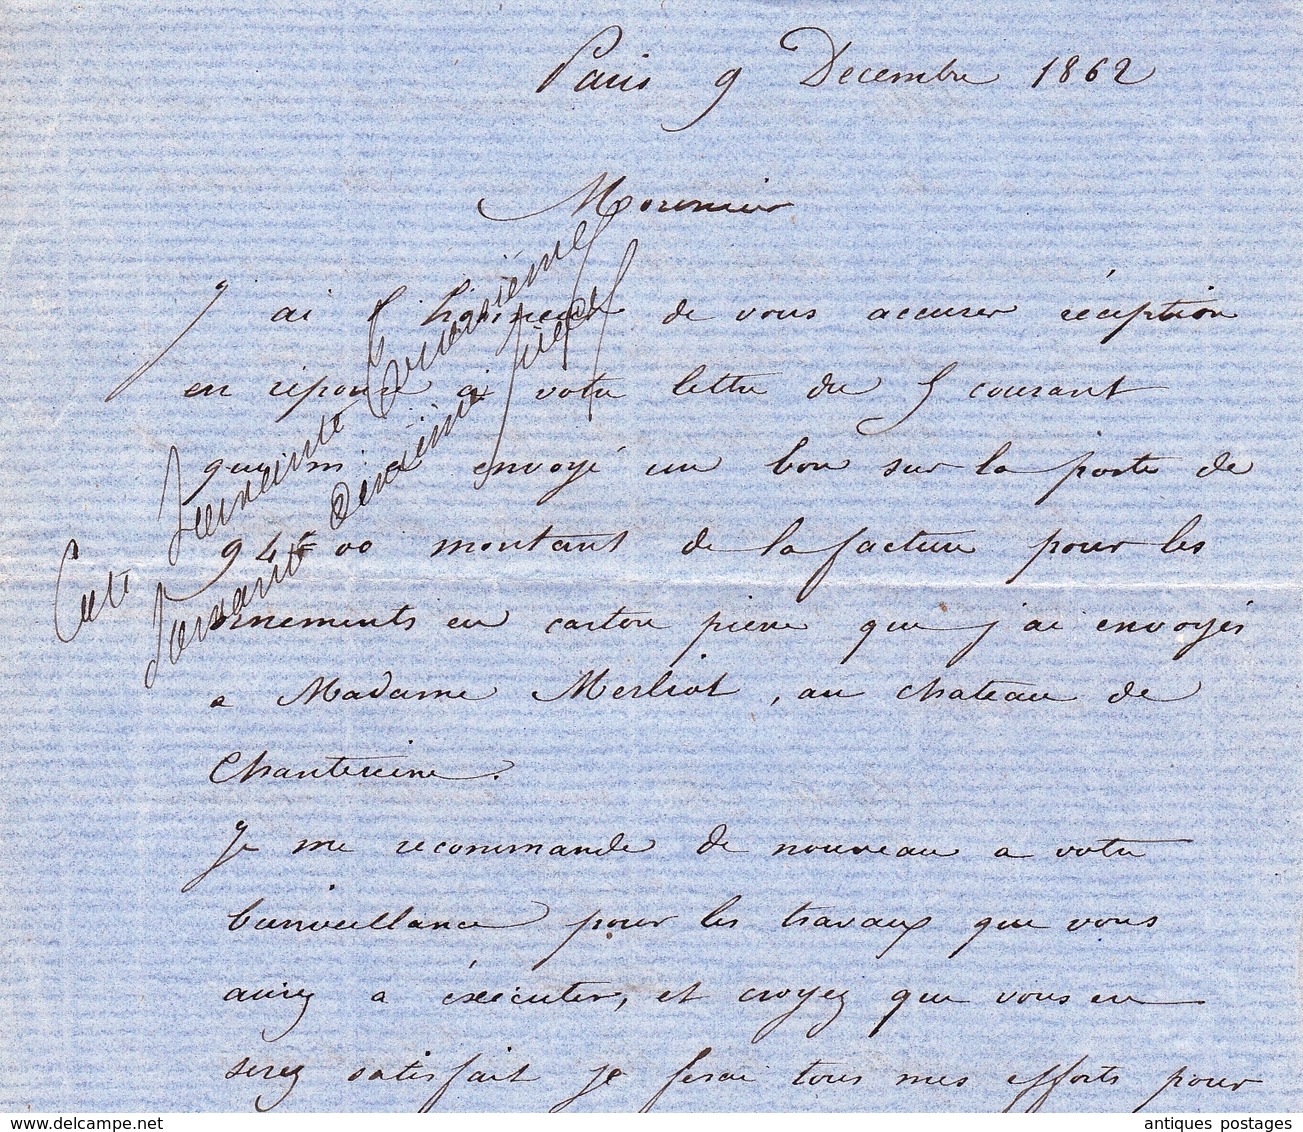 Paris 9 Decembre 1862
Monsieur
J'ai l'honneur de vous accuser réception
en réponse a votre lettre du 5 courant
qui m'a envoyé un bon sur la poste de
94f 00 montant de la facture pour les
ornements en carton pierre que j'ai envoyés
a Madame Merliot, au chateau de
Chantereine.
Je me recommande de nouveau a votre
bienveillance pour les travaux que vous
aurez a éxécuter, et croyez que vous en
serez satisfait je ferai tous mes efforts pour
Cent
deuxième
pièce
www.delcampe.net
antiques postages